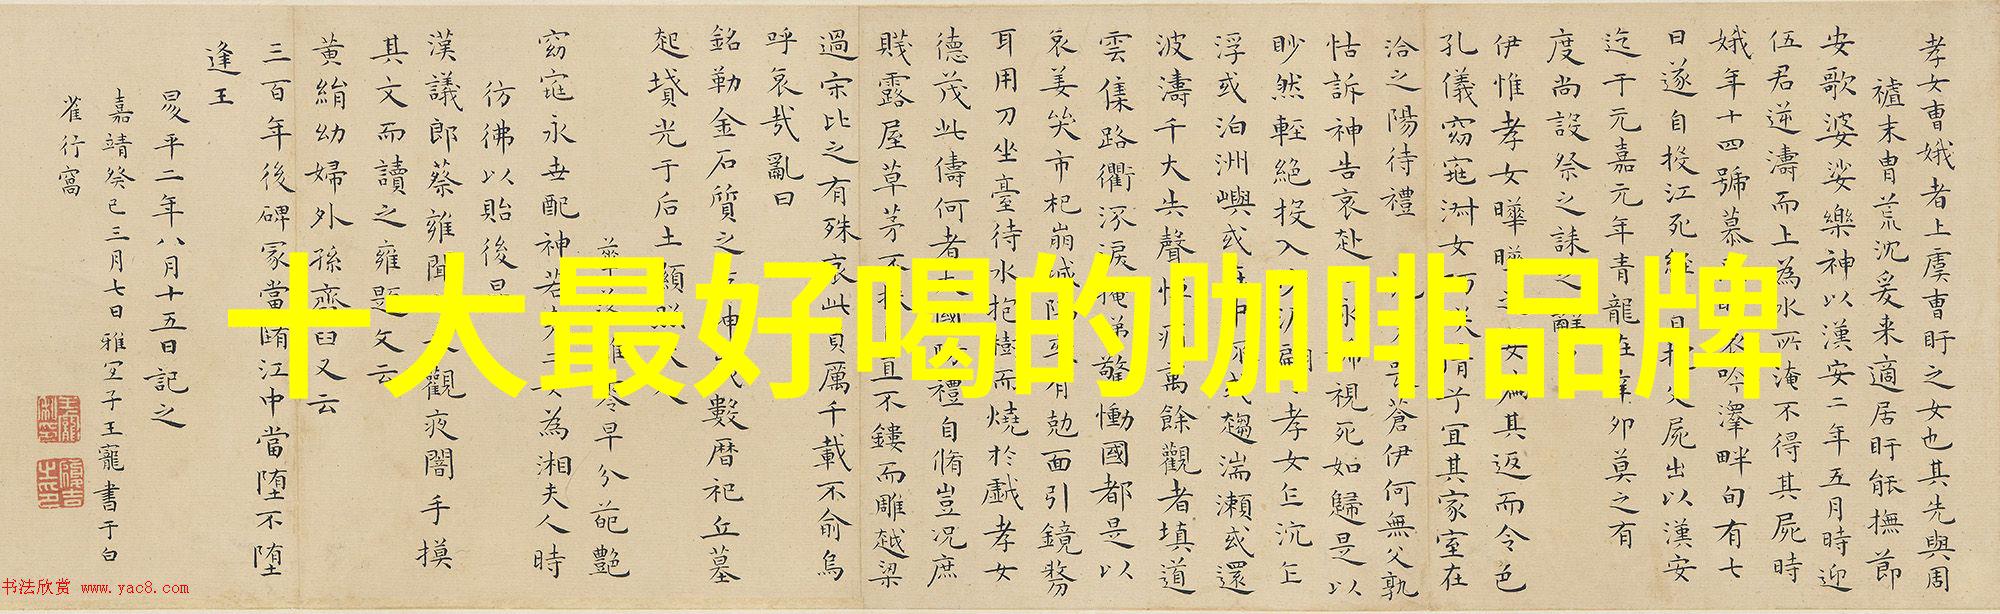 十大最好喝的咖啡品牌
孝女曹娥者上虞曹盱之女也其先與周
末胄荒沈爰来適居盱能撫節
安歌婆娑樂神以漢安二年五月時迎
伍君逆濤而上為水所淹不得其屍時
娥年十四號慕哀吟澤畔旬有七
日遂自投江死經日抱父屍出以漢安
迄于元嘉元年青龍在辛卯莫之有
度尚設祭之誄之辭
伊惟孝女曄曄之女偏其返而令色
孔儀窈窕淑女巧笑倩兮宜其家室在
洽之陽待禮蒼伊何無父孰
怙訴神告哀赴永視死如歸是以
眇然輕絕投入孝女乍沉乍
浮或泊洲嶼或在中流或趨湍瀨或還
波濤千夫失聲悼痛萬餘觀者填道
雲集路衢泳淚掩涕驚慟國都是以
哀姜哭市杞崩城隅或有尅面引鏡剺
耳用刀坐臺待水抱樹而燒於戲孝女
德茂此儔何者大國防禮自脩豈况庶
賤露屋草茅不扶自直不鏤而雕越梁
過宋比之有殊哀此貞厲千載不俞烏
呼哀哉亂曰
銘勒金石質之神數曆祀丘墓
起墳光于后土顯照夫人
零早分葩艷
窈窕永世配神若為湘夫人時
彷彿以貽後昆
漢議郎蔡雍聞觀夜闇手摸
其文而讀之雍題文云
黃絹幼婦外孫齏臼又云
三百年後碑冢當墮江中當墮不墮
逢王
昇平二年八月十五日記之
嘉靖癸巳三月七日雅宜子王寵書于白
雀行窩
书法欣赏 www.yac8.com